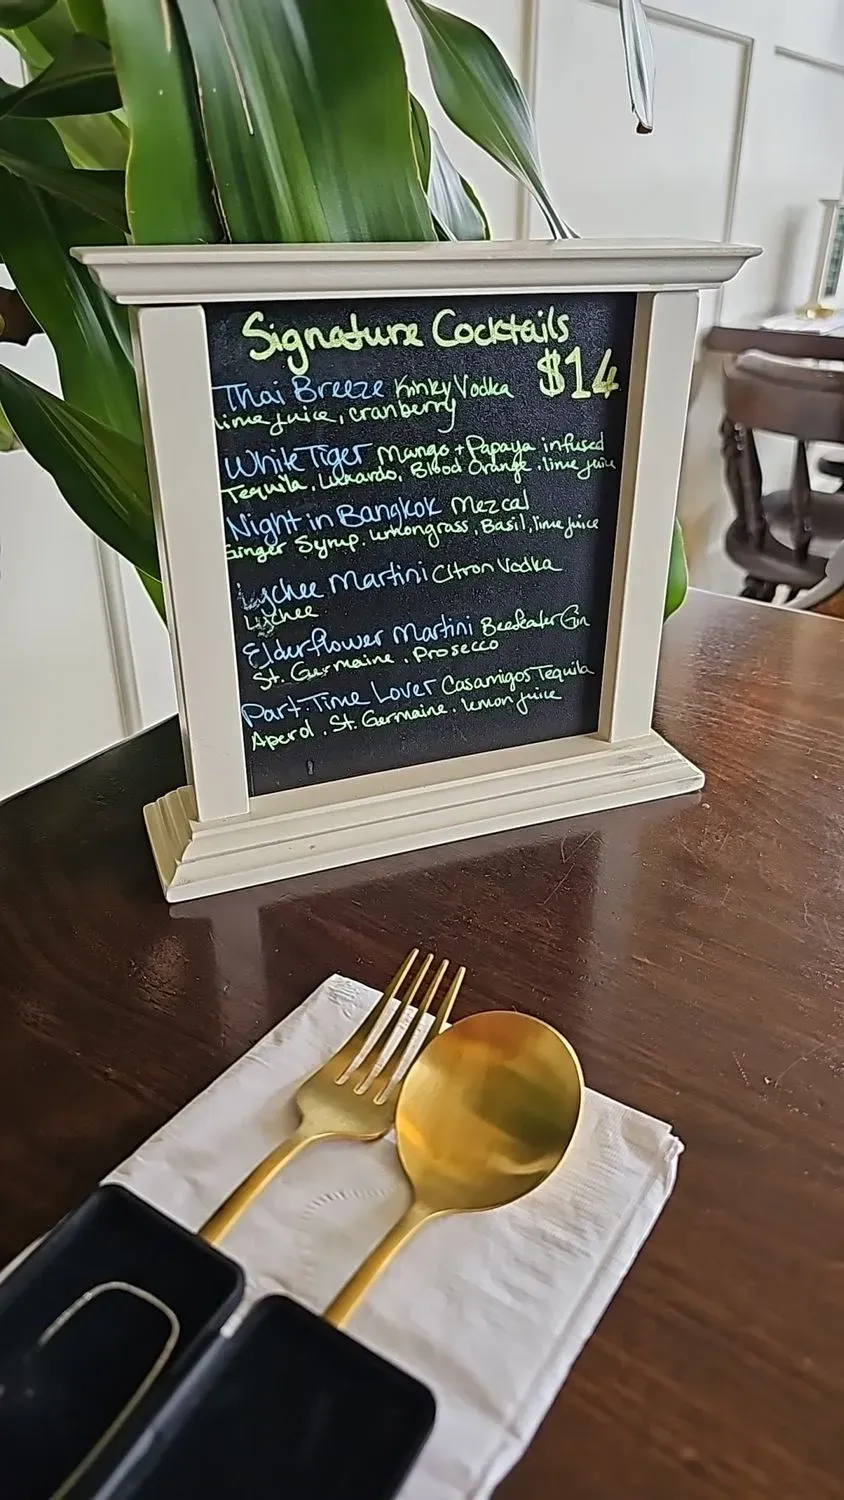 Signature Cocktails
$14
Thai Breeze Kinky Vodka
lime juice, cranberry
White Tiger Mango + Papaya infused
Tequila, Luxardo, Blood Orange, lime juice
Night in Bangkok Mezcal
Ginger Syrup, lemongrass, Basil, lime juice
Lychee Martini Citron Vodka
Lychee
Elderflower Martini Beefeater Gin
St. Germaine, Prosecco
Part-Time Lover Casamigos Tequila
Aperol, St. Germaine, lemon juice